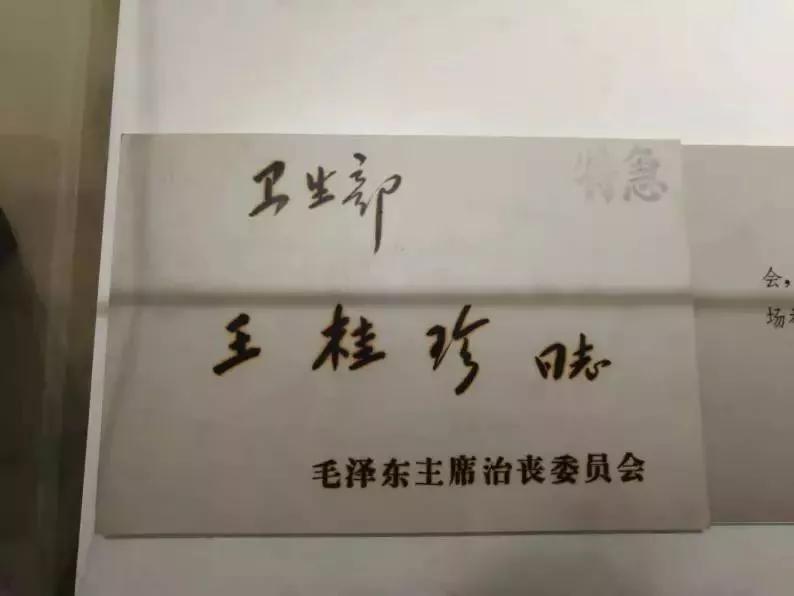 特急
卫生部
王桂珍同志
毛泽东主席治丧委员会
会，
场